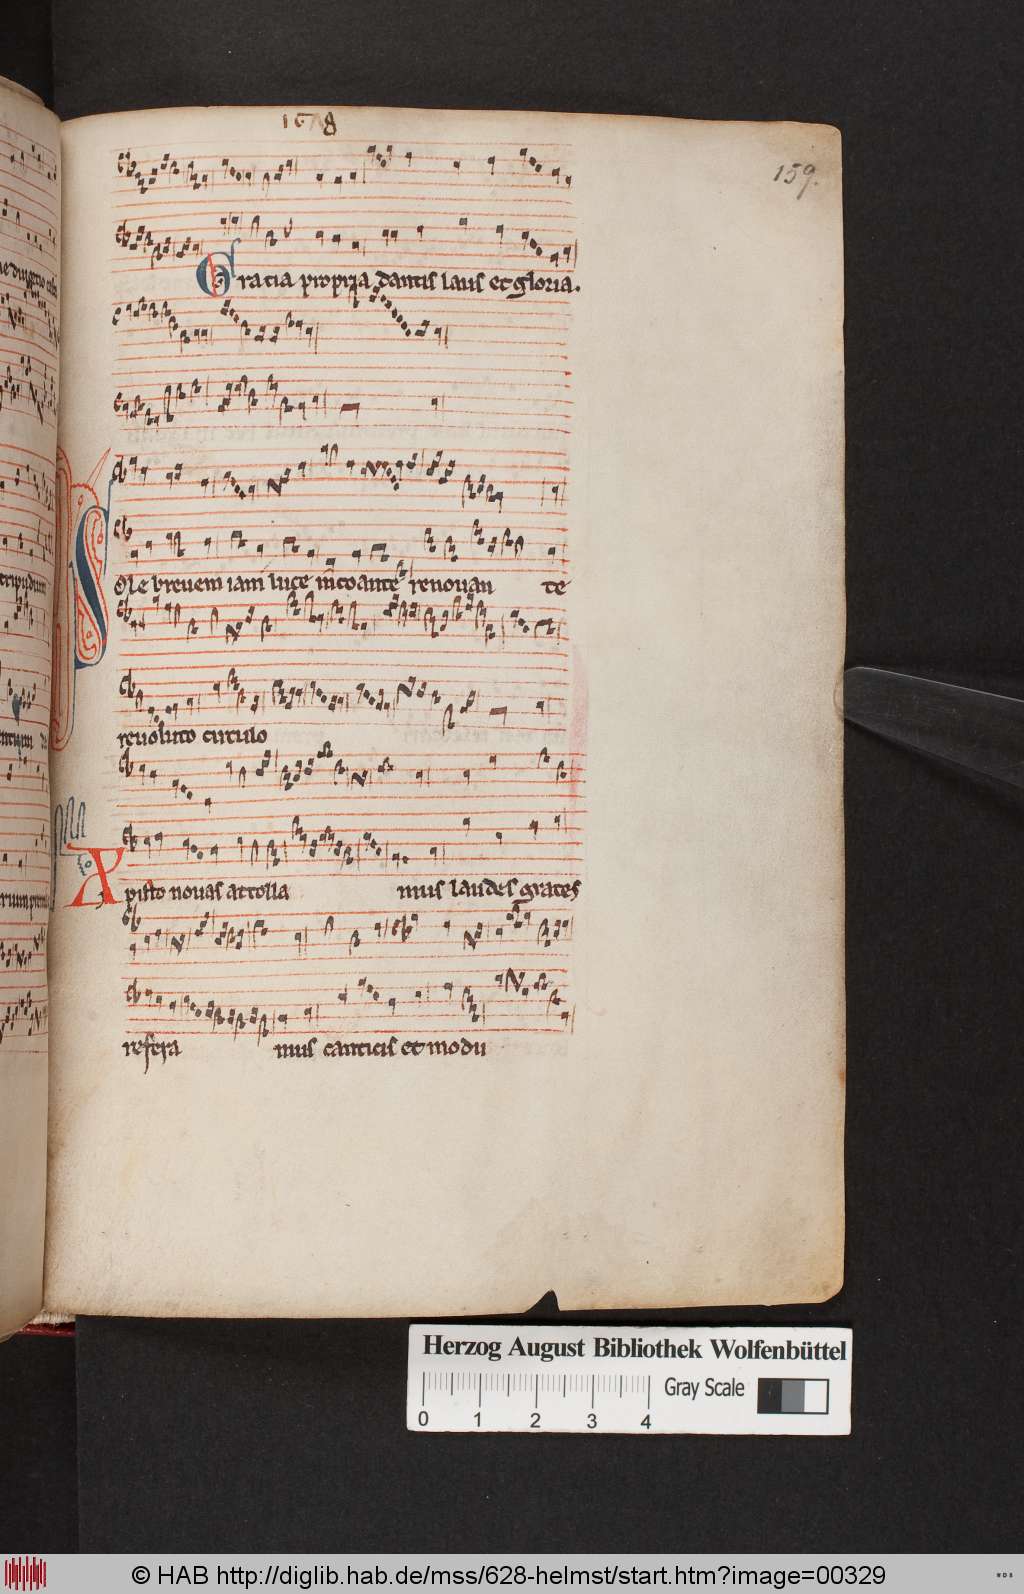 159.
Gratia propria dantis laus et gloria.
Sole brevem iam luce
renovan te
revoluto circulo
Xpisto novas attolla mus laudes grates
refera mus canticis et modu
Herzog August Bibliothek Wolfenbüttel
Gray Scale
0 1 2 3 4
© HAB http://diglib.hab.de/mss/628-helmst/start.htm?image=00329